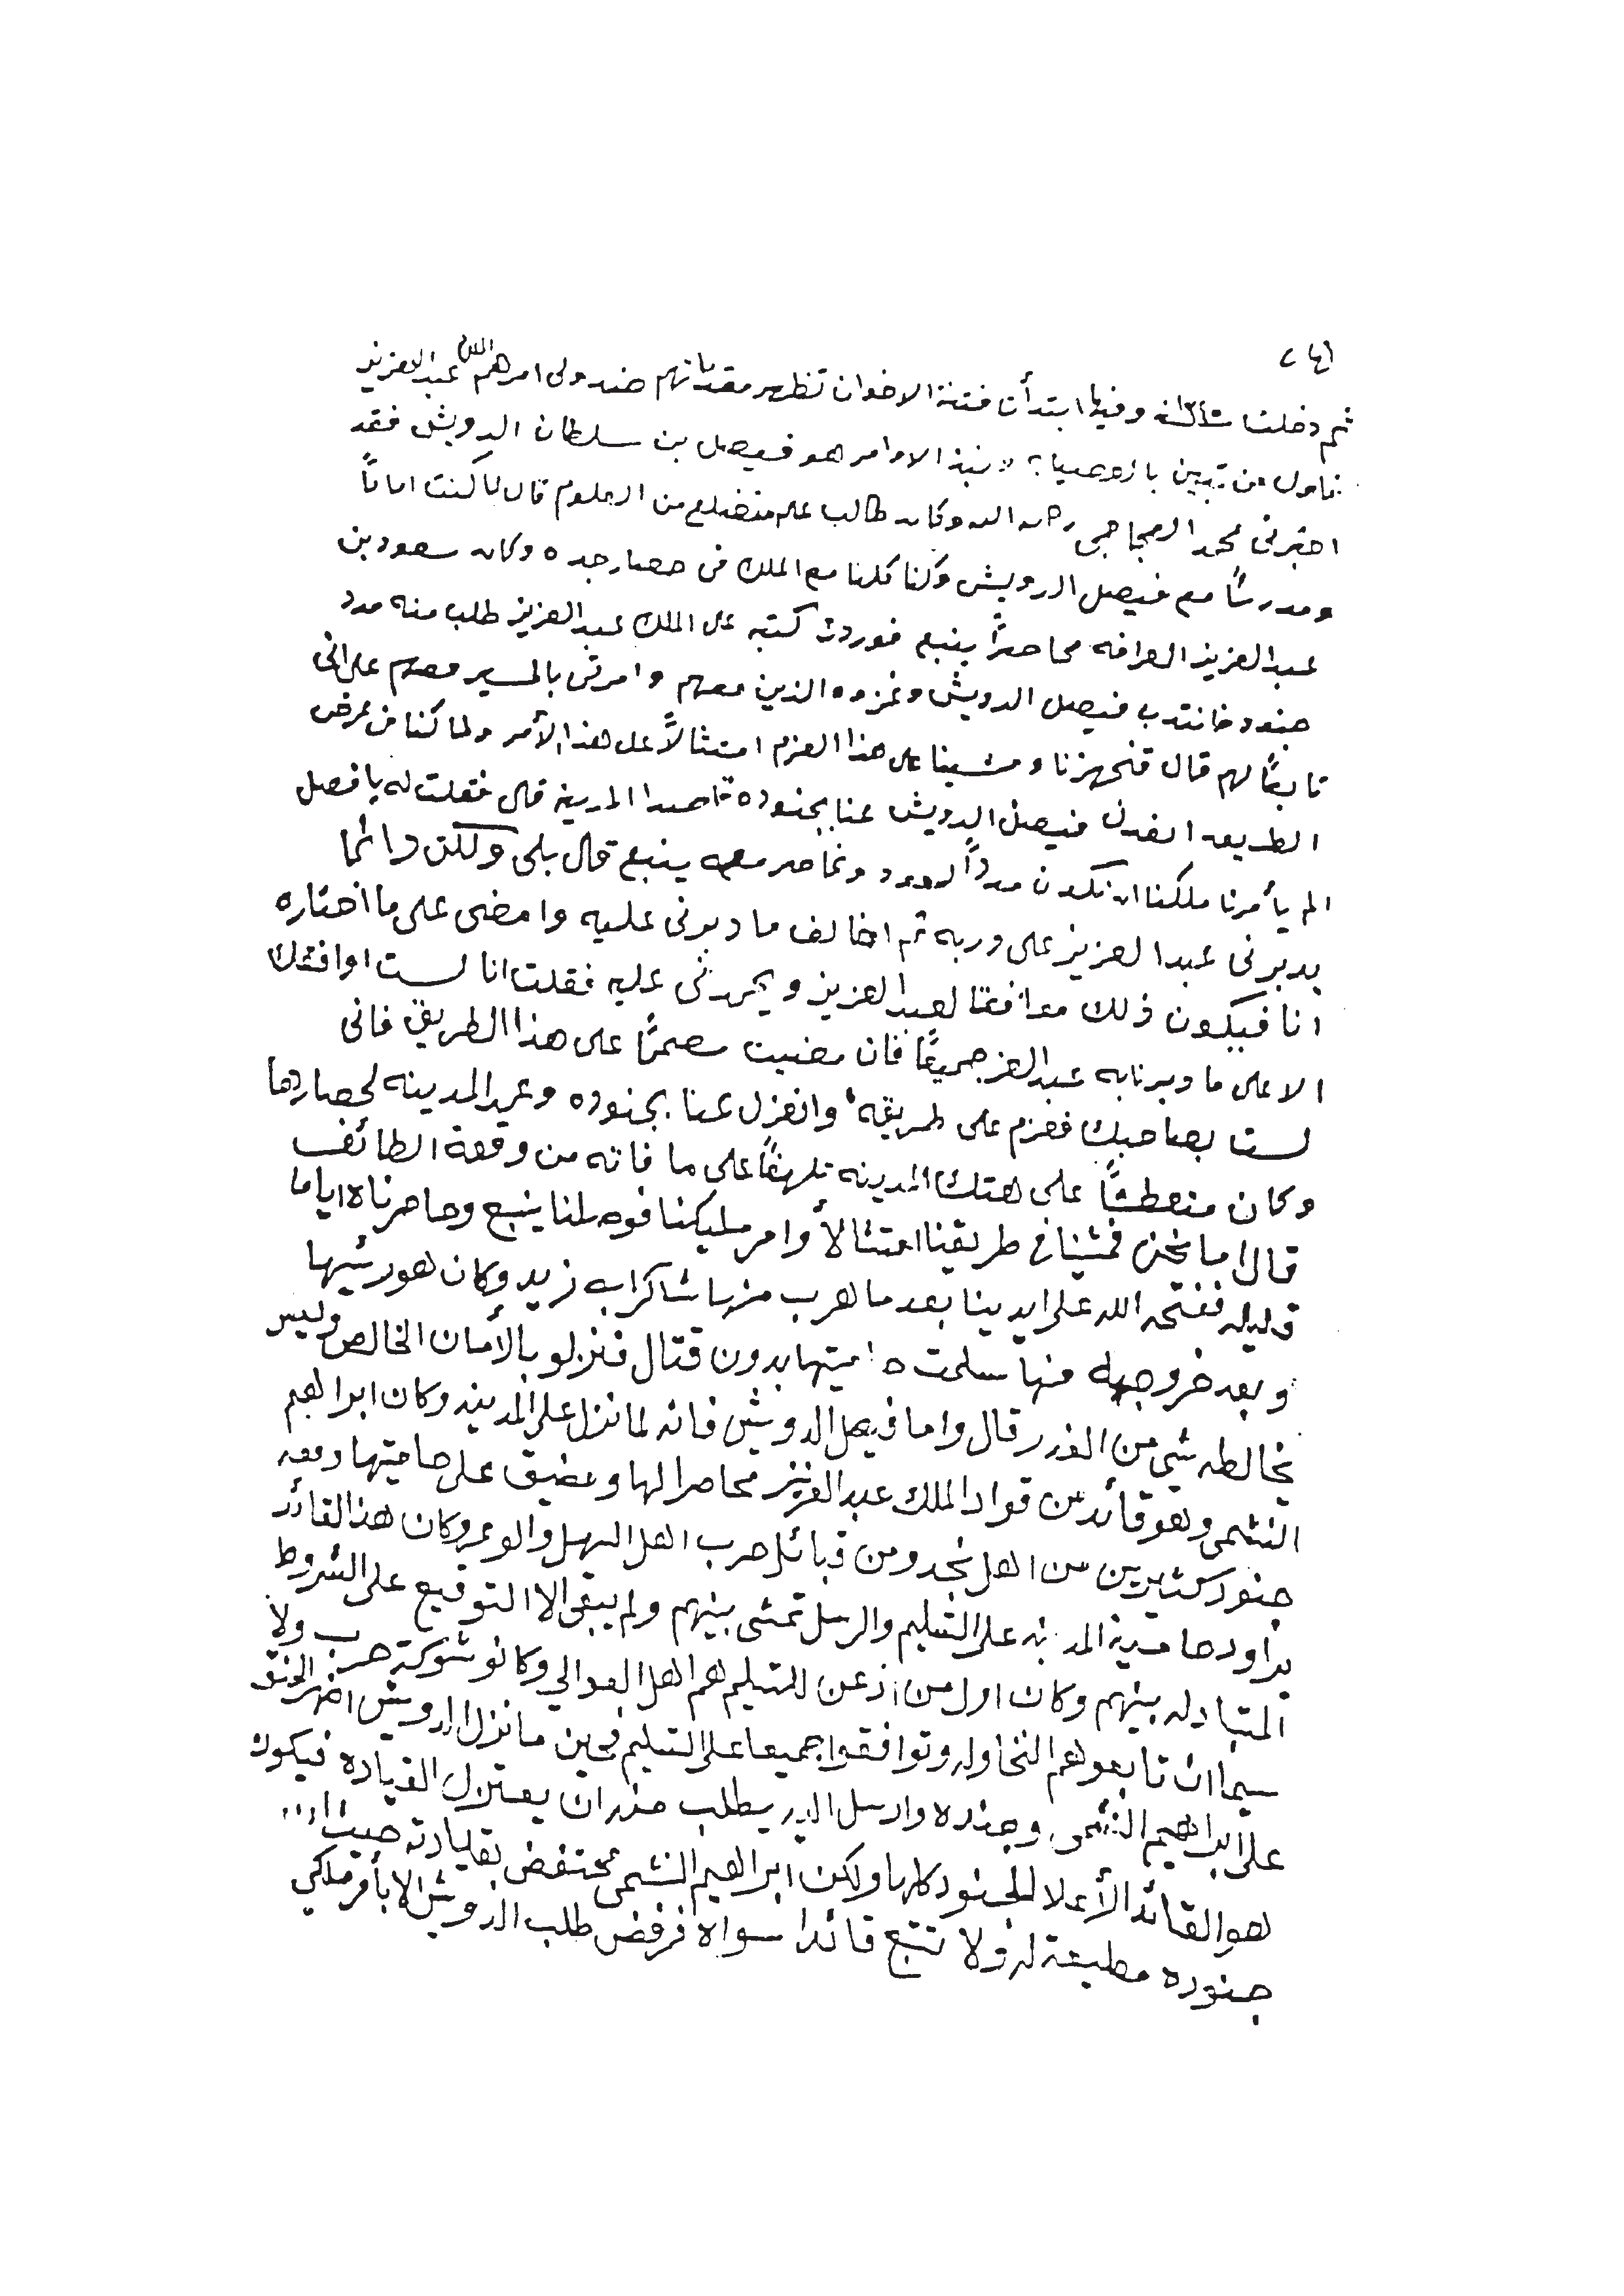 ثم دخلت سنة وفيها ابتدأت فتنة الاخوان تظهر مقدماتهم ضد ولي امرهم الملك عبدالعزيز
فاول من تبين بالعصيان ونبذ الاوامر هو فيصل بن سلطان الدويش فقد
اخبرني محمد العجاجي رحمه الله وكان طالب علم متضلع من العلوم قال لما كنت اماماً
ومدرساً مع فيصل الدويش وكنا كلنا مع الملك في حصار جده وكان سعود بن
عبدالعزيز العرافه محاصراً ينبع فوردت كتبه على الملك عبدالعزيز طلب منه مدد
جنود فانتدب فيصل الدويش وغزوه الذين معهم وامرني بالمسير معهم على اني
تابعاً لهم قال فتجهزنا ومشينا على هذا العزم امتثالاً على هذا الأمر ولما كنا في عرض
الطريق انعدل فيصل الدويش عنا بجنوده قاصدا المدينه قال فقلت له يا فيصل
الم يأمرنا ملكنا ان نكون مدداً لسعود ونحاصر معه ينبع قال بلى ولكن دائما
يدبرني عبدالعزيز على دربه ثم اخالف ما دبرني عليه وامضي على ما اختاره
انا فيكون ذلك موافقا لعبدالعزيز ويحمدني عليه فقلت انا لست اوافقك
الا على ما دبرنا به عبدالعز جميعاً فان مضيت مصمماً على هذا الطريق فاني
لست بصاحبك فعزم على طريقه وانعزل عنا بجنوده وعمد المدينه لحصارها
وكان متعطشاً على هتك المدينه تلهفاً على ما فاته من وقعة الطائف
قال اما نحن فمشينا في طريقنا امتثالا لأوامر مليكنا فوصلنا ينبع وحاصرناه اياما
قليله ففتحه الله على ايدينا بعد ما هرب منها شاكر ابن زيد وكان هو رئيسها
وبعد خروجه منها سلمت حاميتها بدون قتال فنزلو بالأمان الخالص وليس
يخالطه شيء من الغدر قال واما فيصل الدويش فانه لما نزل على المدينه وكان ابراهيم
النشمي وهو قائد من قواد الملك عبدالعزيز محاصرا لها ومضيق على حاميتها ومعه
جنود كثيرين من اهل نجد ومن قبائل حرب اهل السهل والوعر وكان هذا القائد
يراود حامية المدينه على التسليم والرسل تمشي بينهم ولم يبقى الا التوقيع على الشروط
المتبادله بينهم وكان اول من اذعن للتسليم هم اهل العوالي وكانو شوكة حرب ولا
سيما ان تابعوهم النخاوله وتوافقوا جميعا على التسليم فحين ما نزل الدويش اظهر الحنق
على ابراهيم النشمي وجنوده وارسل اليه يطلب منه ان يعتزل القياده فيكون
هو القائد الأعلا للجنود كلها ولكن ابراهيم النشمي محتفض بقيادته حيث ان
جنوده مطيعة له ولا تتبع قائدا سواه فرفض طلب الدويش الا بأمر ملكي